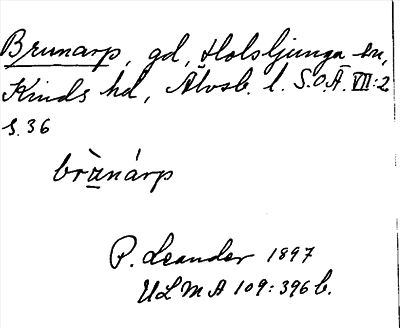 Brunarp, gd, Holsljunga sn,
Kinds hd, Älvsb. l. S.O.Ä. VII:2
s. 36
brùnárp
P. Leander 1897
ULMA 109:396 b.